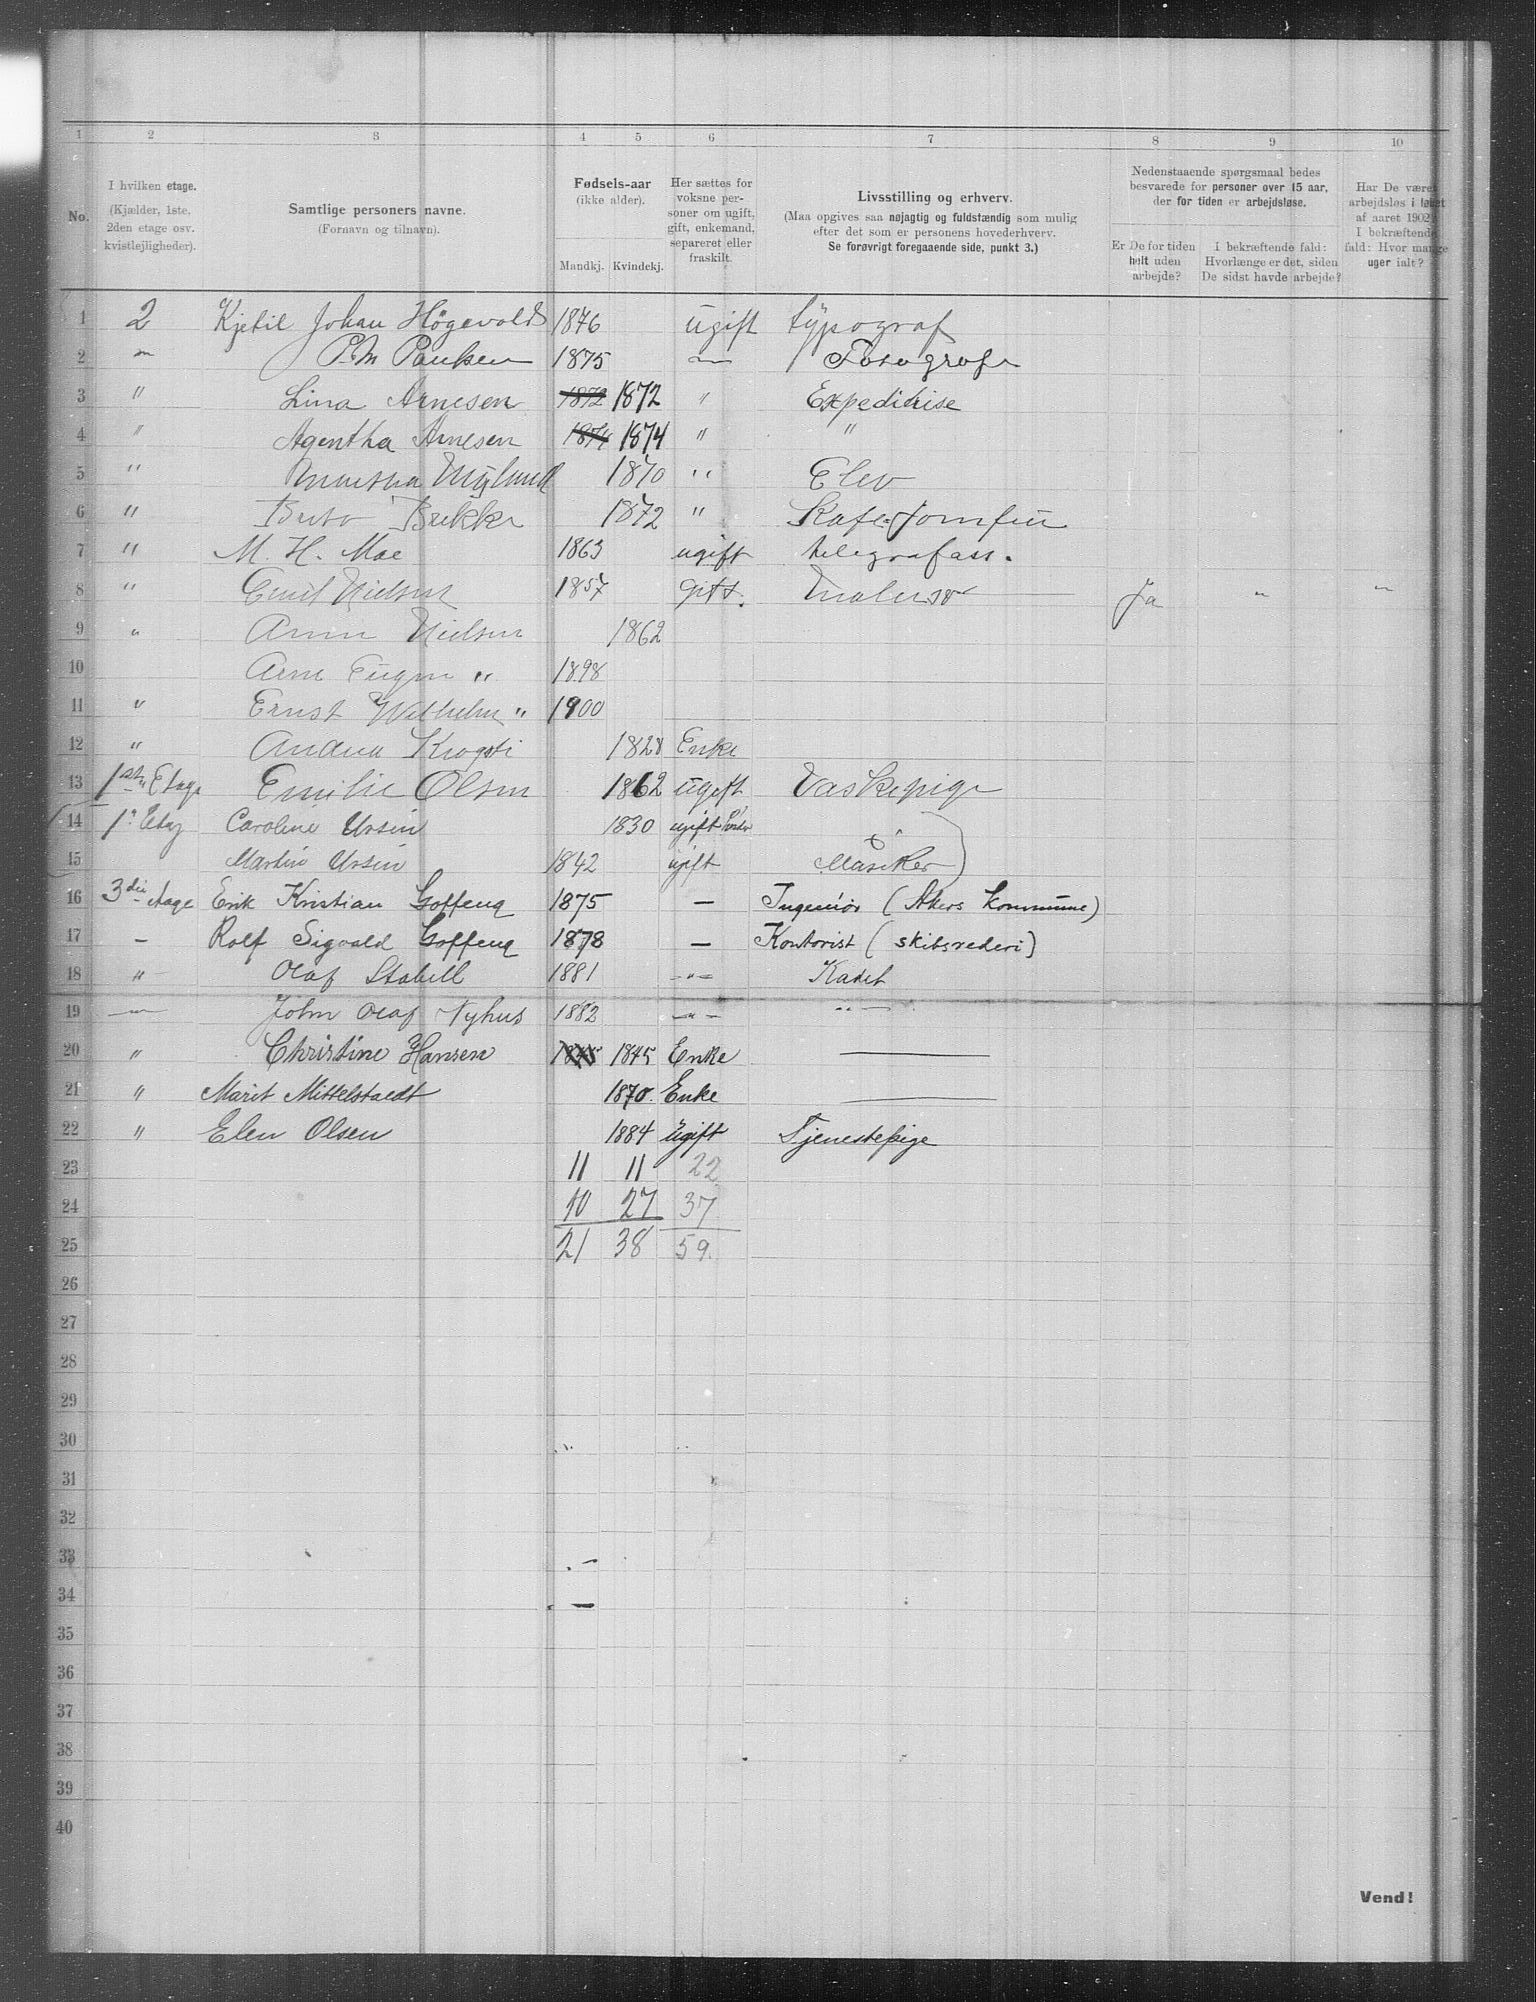 1 2 3 4 5 6 7 8 9 10
No.
I hvilken etage.
(Kjælder, 1ste.
2den etage osv.
kvistlejligheder).
Samtlige personers navne.
(Fornavn og tilnavn).
Fødsels-aar
(ikke alder).
Mandkj. Kvindekj.
Her sættes for
voksne per-
soner om ugift,
gift, enkemand,
separeret eller
fraskilt.
Livsstilling og erhverv.
(Maa opgives saa nøjagtig og fuldstændig som mulig
efter det som er personens hovederhverv.
Se forøvrigt foregaaende side, punkt 3.)
Nedenstaaende spørgsmaal bedes
besvarede for personer over 15 aar,
der for tiden er arbejdsløse.
Er De for tiden
helt uden
arbejde?
I bekræftende fald:
Hvorlænge er det, siden
De sidst havde arbejde?
Har De været
arbejdsløs i løbet
af aaret 1902?
I bekræftende
fald: Hvor mange
uger ialt?
1 2 Kjetil Johan Högevold 1876 ugift typograf
2 — P. M Paulsen 1875 — Fotograf
3 " Lina Arnesen 1872 1872 " Expeditrise
4 " Agentha Arnesen 1874 1874 " "
5 " Mylund 1870 " Elev
6 " Brikke 1872 " Kafe-Jomfru
7 " M. H. Moe 1863 ugift telegrafass.
8 " Emil Nielsen 1857 gift. Ja " "
9 " Anna Nielsen 1862
10 Arne " 1898
11 " Ernst Wilhelm " 1900
12 " Andrea 1828 Enke
13 1ste Etage Emilie Olsen 1862 ugift Vaskepige
14 1. Etag Caroline Ursin 1830 ugift
15 Martin Ursin 1842 ugift Musiker
16 3die Etage Erik Kristian Goffeng 1875 — Ingeniör (Akers kommune)
17 — Rolf Sigvald Goffeng 1878 — Kontorist (skibsrederi)
18 " Olaf Stabell 1881 -"- Kadet
19 — John Olaf Nyhus 1882 -"- "—
20 " Christine Hansen 1845 1845 Enke —
21 " Marit Mittelstaedt 1870. Enke —
22 " Elen Olsen 1884 ugift Tjenestepige
23 11 11 22
24 10 27 37
25 21 38 59.
26
27
28
29
30
31
32
33
34
35
36
37
38
39
40
Vend!